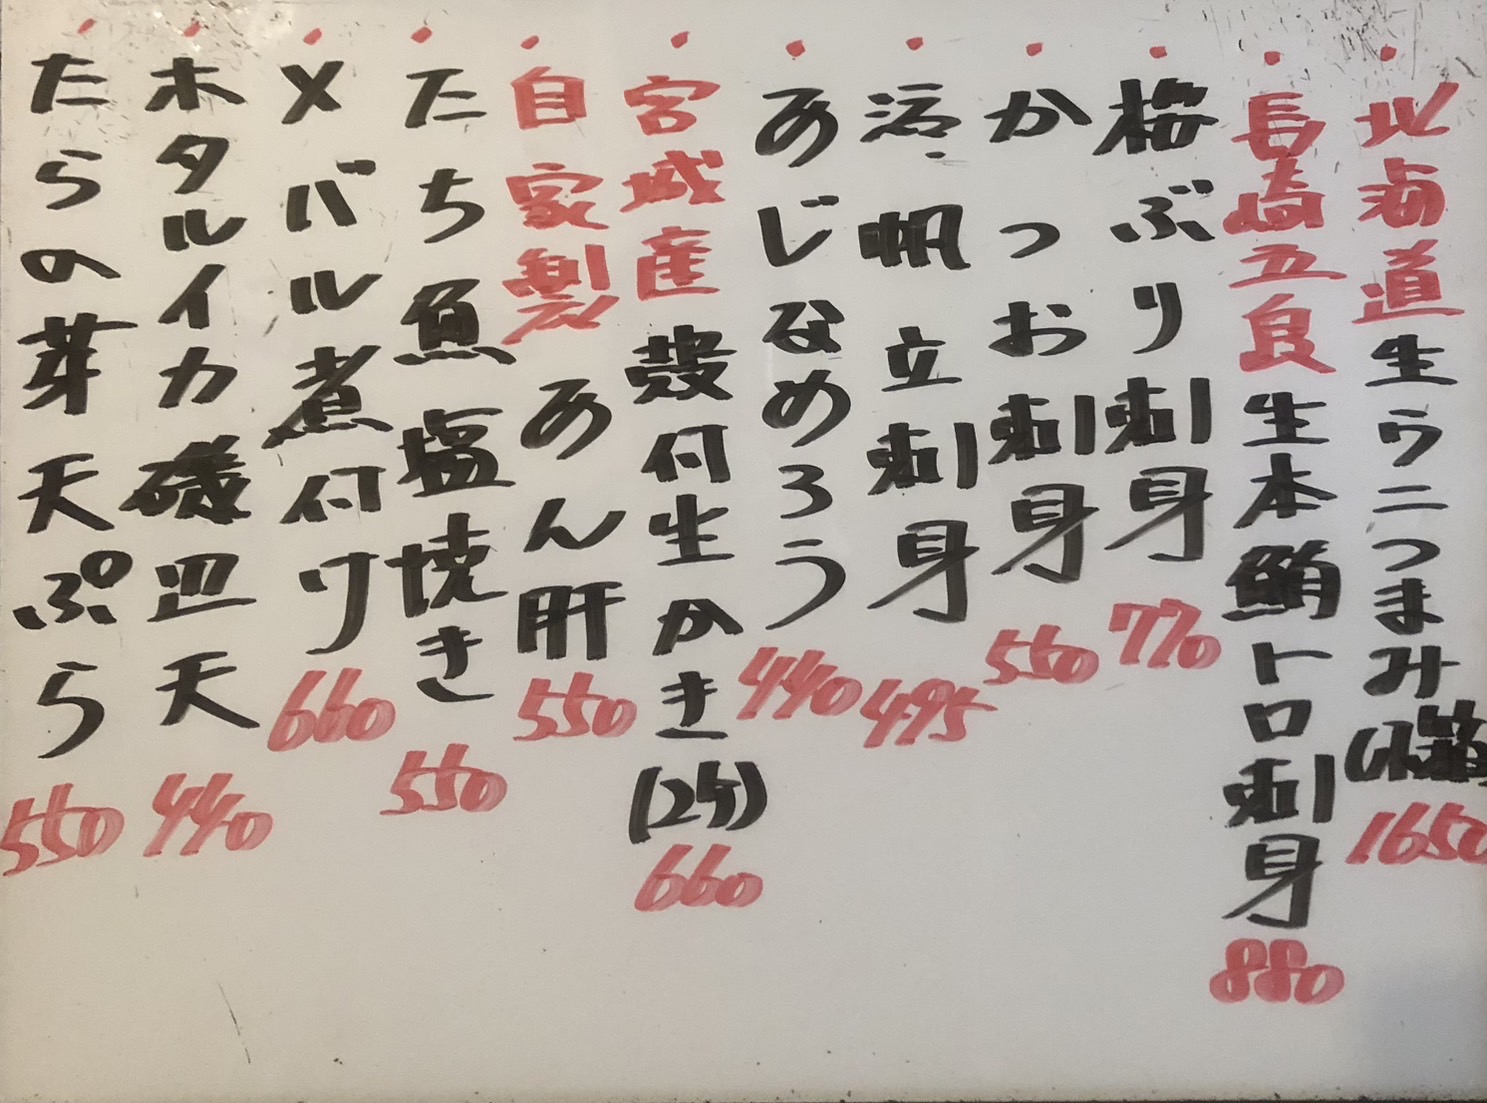 ・北海道生ウニつまみ(小箱
1650
・長崎五島生本鮪トロ刺身
880
・桜ぶり刺身
770
・かつお刺身
550
・活帆立刺身
495
・あじなめろう
440
・宮城産殻付生かき(2ケ)
660
・自家製あん肝
550
・たち魚塩焼き
550
・メバル煮付け
660
・ホタルイカ磯辺天
440
・たらの芽天ぷら
550